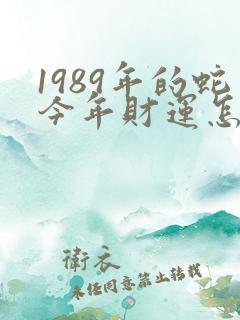 1989年的蛇
今年財運怎
衛衣
未任同意禁止转载